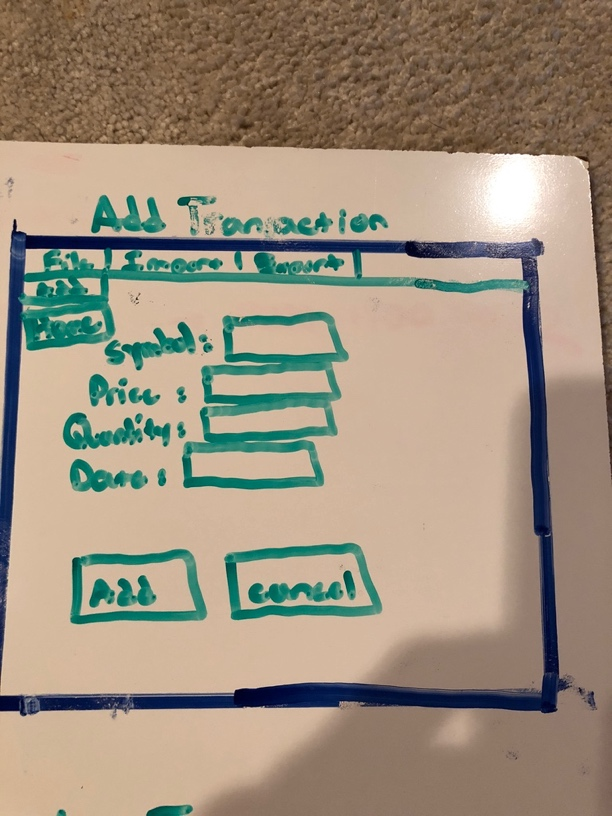 Add Transaction
File | Import | Export |
Add
Home
Symbol:
Price:
Quantity:
Date:
Add cancel